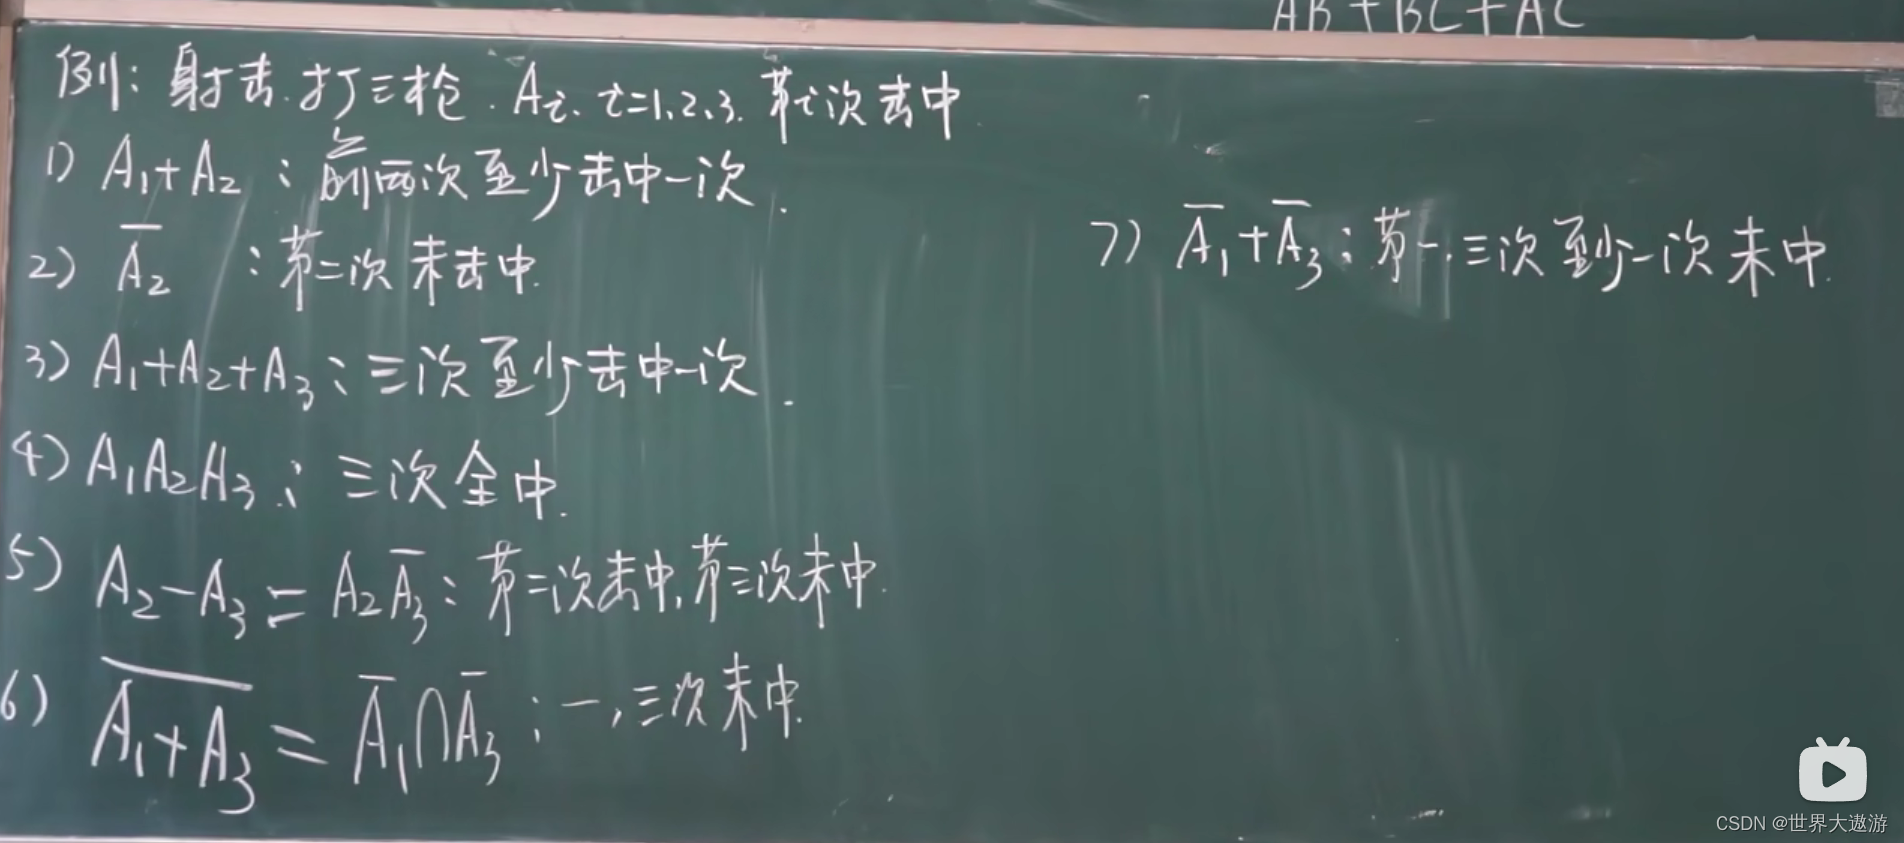 AB+BC+AC
例：射击.打三枪.Aᵢ. i=1.2.3. 第i次击中.
1) A₁+A₂：前两次至少击中一次.
2) A̅₂：第二次未击中.
3) A₁+A₂+A₃：三次至少击中一次.
4) A₁A₂A₃：三次全中.
5) A₂-A₃=A₂A̅₃：第二次击中,第三次未中.
6) \overline{A₁+A₃}=A̅₁∩A̅₃：一,三次未中.
7) A̅₁+A̅₃：第一,三次至少一次未中.
CSDN @世界大遨游